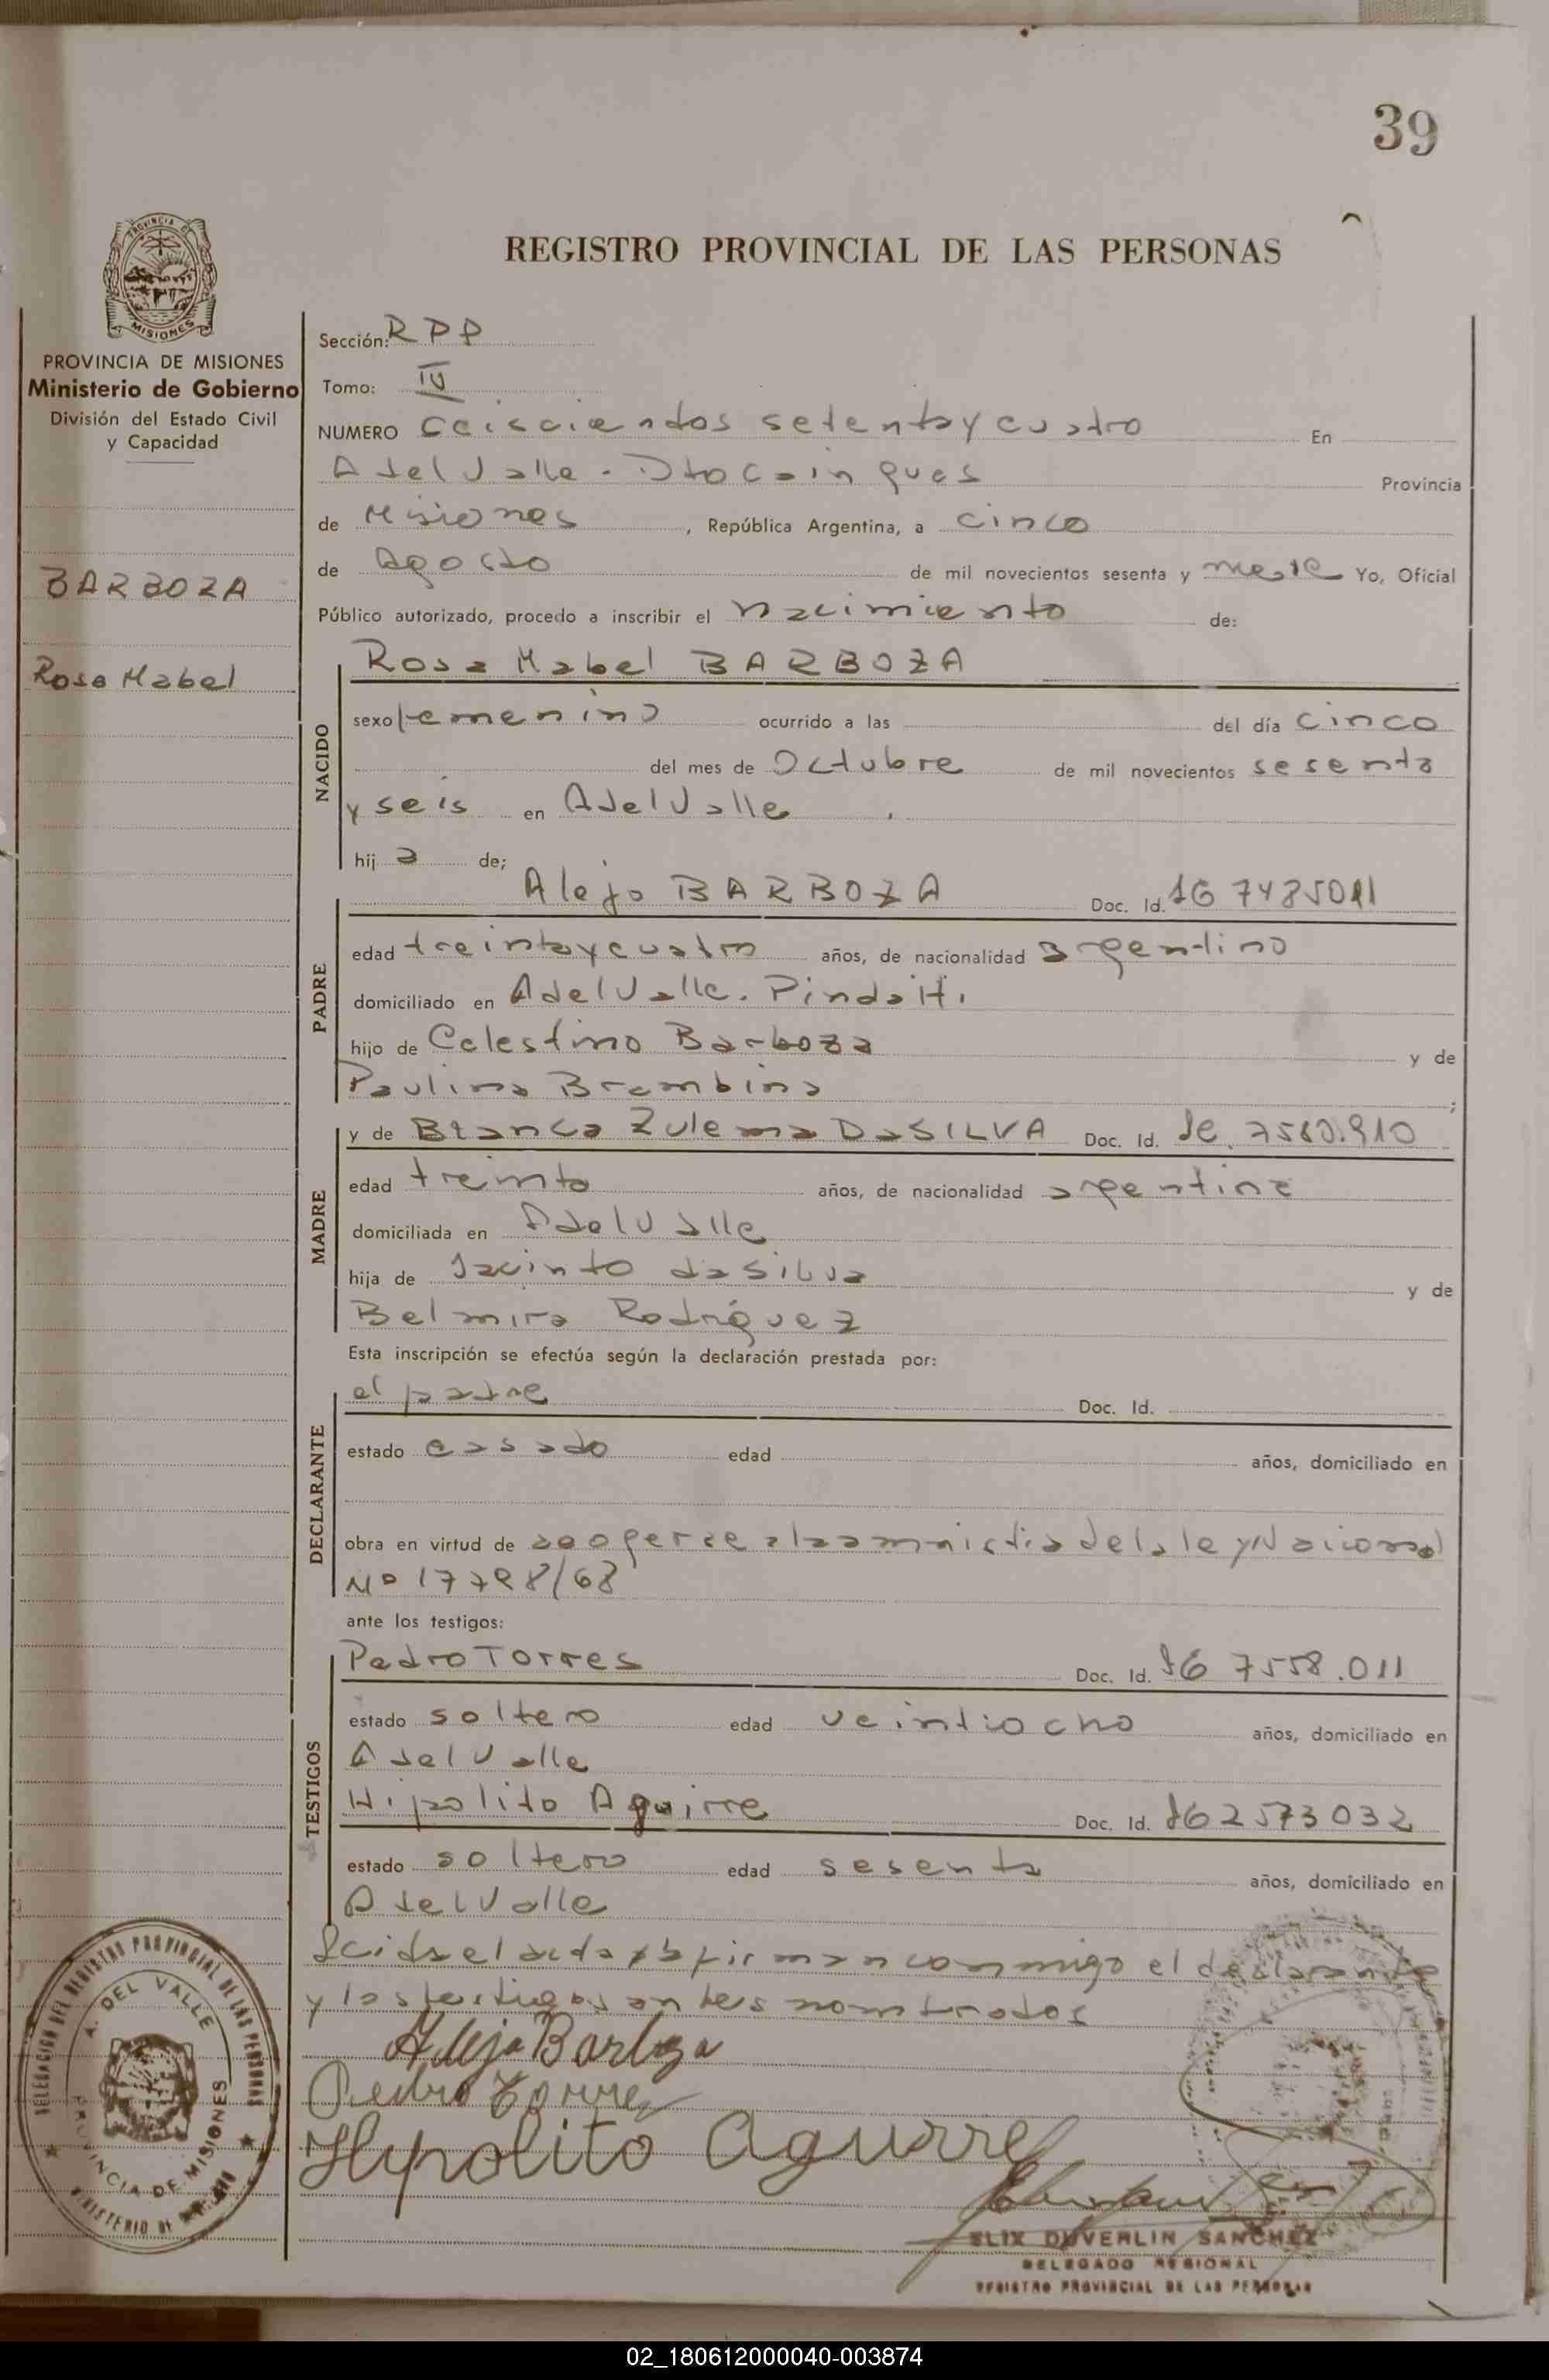 39
REGISTRO PROVINCIAL DE LAS PERSONAS
PROVINCIA DE MISIONES
Ministerio de Gobierno
División del Estado Civil
y Capacidad
BARBOZA
Rosa Mabel
Sección: RPP
Tomo: IV
NUMERO Ceisciendos setentaycuatro En
A del Valle - Dto Cainguas Provincia
de Misiones, República Argentina, a cinco
de Agosto de mil novecientos sesenta y nueve Yo, Oficial
Público autorizado, procedo a inscribir el nacimiento de:
NACIDO
Rosa Mabel BARBOZA
sexo femenino ocurrido a las del día cinco
del mes de Octubre de mil novecientos sesenta
y seis en A del Valle.
hija de;
PADRE
Alejo BARBOZA Doc. Id.
edad treintaycuatro años, de nacionalidad argentino
domiciliado en A del Valle. Pindaití.
hijo de Celestino Barboza y de
Paulina Brambina ;
MADRE
y de Blanca Zulema DaSILVA Doc. Id.
edad treinta años, de nacionalidad argentina
domiciliada en A del Valle
hija de Jacinto da Silva y de
Belmira Rodríguez
Esta inscripción se efectúa según la declaración prestada por:
DECLARANTE
el padre Doc. Id.
estado casado edad años, domiciliado en
obra en virtud de acogerse a la amnistia de la ley Nacional
Nº 17798/68
ante los testigos:
TESTIGOS
Pedro Torres Doc. Id. 7558.011
estado soltero edad veintiocho años, domiciliado en
A del Valle
Hipolito Aguirre Doc. Id. 2573032
estado soltero edad sesenta años, domiciliado en
A del Valle
Leida el acta la firman conmigo el declarante
y los testigos antes nombrados
Alejo Barboza
Pedro Torres
Hypolito Aguirre
ELIX DUVERLIN SANCHEZ
DELEGADO REGIONAL
REGISTRO PROVINCIAL DE LAS PERSONAS
DELEGACION DEL REGISTRO PROVINCIAL DE LAS PERSONAS
A. DEL VALLE
PROVINCIA DE MISIONES
02_180612000040-003874